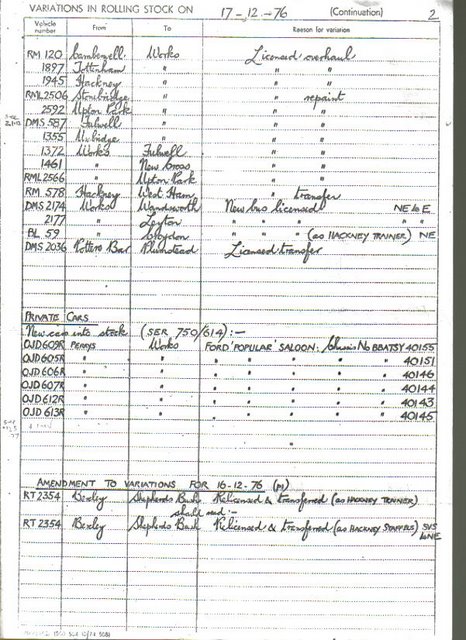 VARIATIONS IN ROLLING STOCK ON 17-12-76 (Continuation) 2
Vehicle number From To Reason for variation
RM 120 Camberwell Works Licensed overhaul
1897 Tottenham " " "
1945 Hackney " " "
RML2506 Stonebridge " " repaint
2592 Upton Park " " "
DMS 587 Fulwell " " "
1355 Uxbridge " " "
1372 Works Fulwell " "
1461 " New Cross " "
RML2566 " Upton Park " "
RM 578 Hackney West Ham " transfer
DMS 2174 Works Wandsworth New bus licensed NE to E
2177 " Leyton " " " " "
BL 59 " Croydon " " " (as HACKNEY TRAINER) NE
DMS 2036 Potters Bar Plumstead Licensed transfer
PRIVATE CARS
New cars into stock (SER 750/614):-
OJD609R PERRYS Works FORD 'POPULAR' SALOON: Chassis No BBATSY 40155
OJD605R " " " " " " " 40151
OJD606R " " " " " " " 40146
OJD607R " " " " " " " 40144
OJD612R " " " " " " " 40143
OJD613R " " " " " " " 40145
AMENDMENT TO VARIATIONS FOR 16-12-76 (p1)
RT2354 Bexley Shepherds Bush Relicensed & transferred (as HACKNEY TRAINER)
shall read:-
RT2354 Bexley Shepherds Bush Relicensed & transferred (as HACKNEY STAFF BUS) SVS
to NE